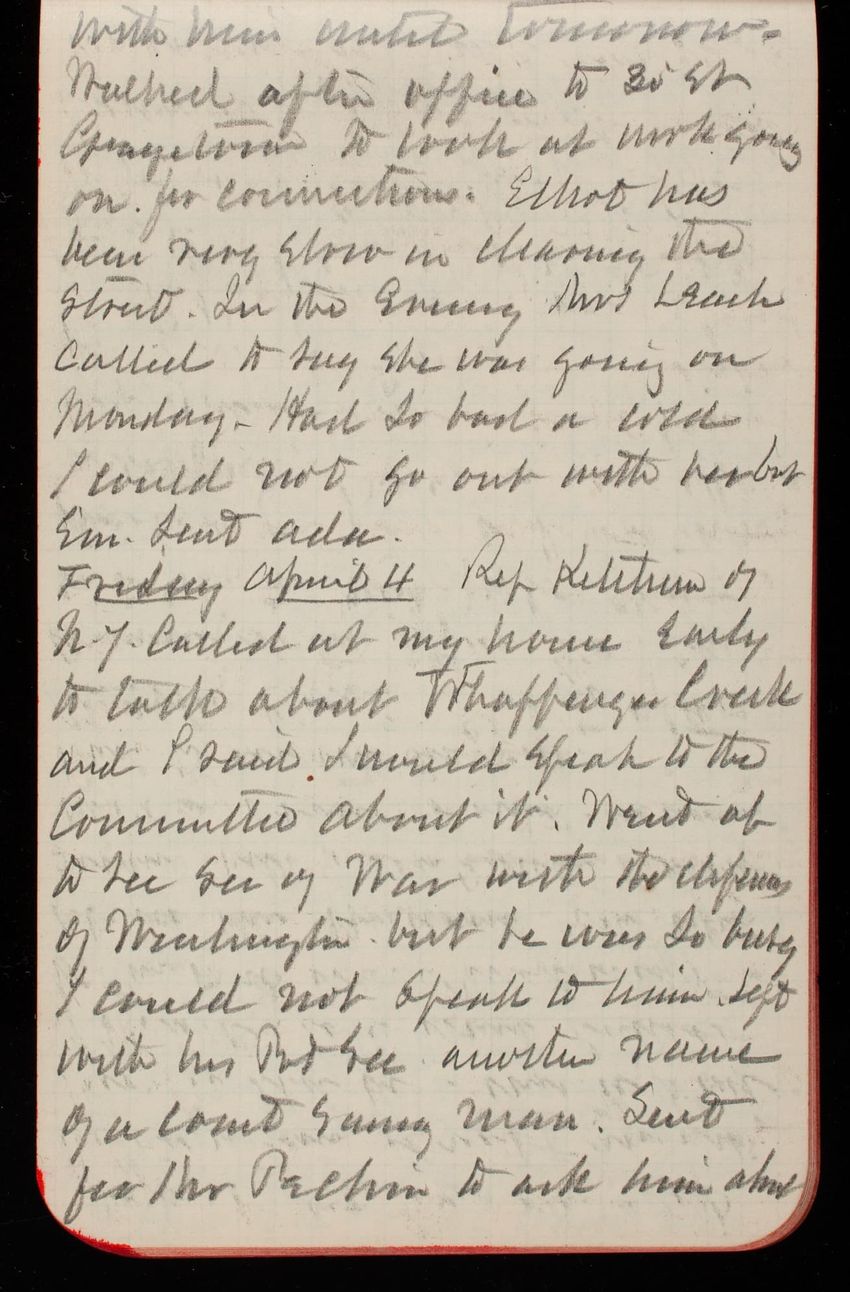 with him until tomorrow.
Walked after office to 35 St
Georgetown to look at work going
on. for connections. Elliot has
been very slow in clearing the
street. In the Evening Mrs Leach
called to say she was going on
Monday. Had so bad a cold
I could not go out with her but
Em. sent Ada.
Friday April 4 Rep Ketcham of
N.Y. Called at my house Early
to talk about Whappenger Creek
and I said I would speak to the
Committee about it. Went up
to see Sec of War with the defenses
of Washington but he was so busy
I could not speak to him. left
with his Pvt Sec another name
of a court young man. Sent
for Mr Pechin to ask him about